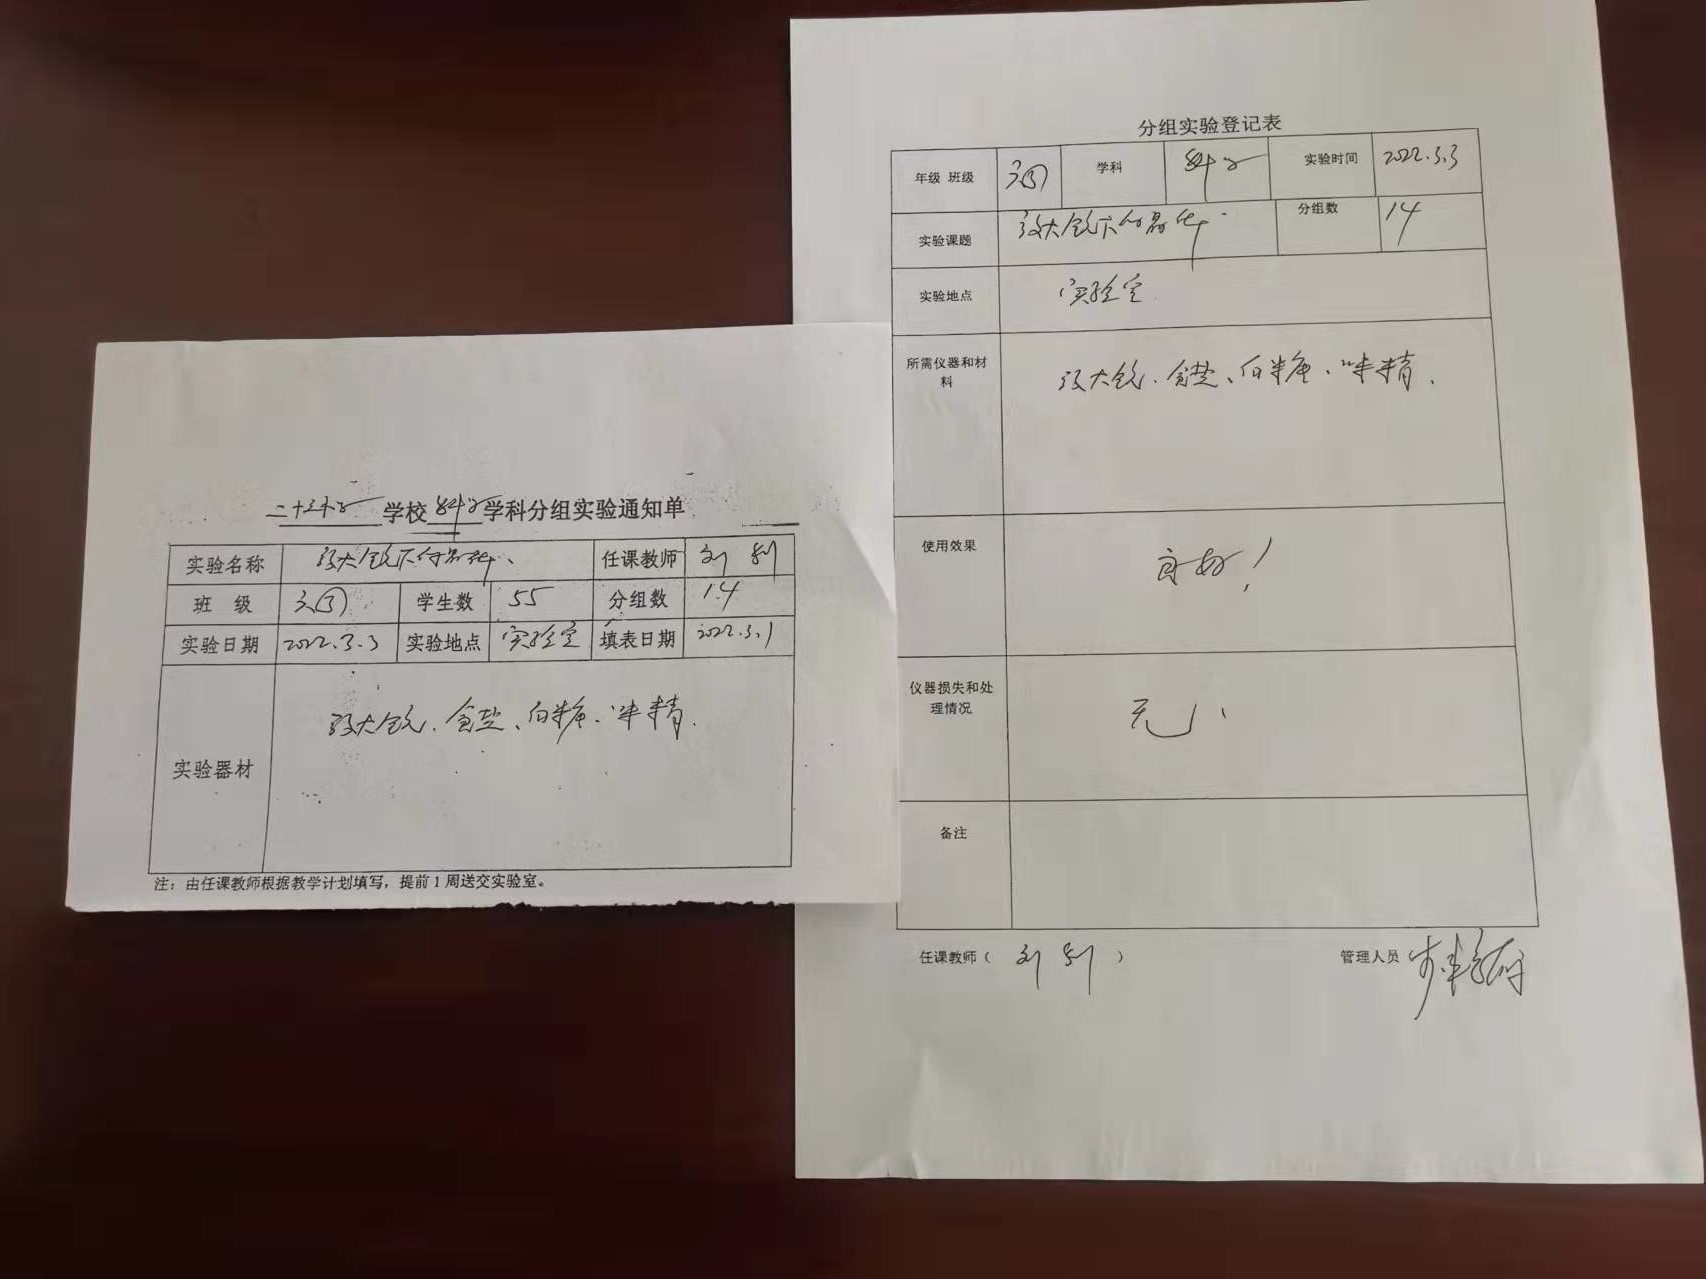 学校 科学 学科分组实验通知单
实验名称 放大镜下的晶体、 任课教师 刘
班 级 六③ 学生数 55 分组数 14
实验日期 2022.3.3 实验地点 实验室 填表日期 2022.3.1
实验器材 放大镜、食盐、白糖、味精.
注：由任课教师根据教学计划填写，提前1周送交实验室。
分组实验登记表
年级 班级 六③ 学科 科学 实验时间 2022.3.3
实验课题 放大镜下的晶体. 分组数 14
实验地点 实验室
所需仪器和材料 放大镜、食盐、白糖、味精.
使用效果 良好！
仪器损失和处理情况 无、
备注
任课教师（ 刘 ） 管理人员